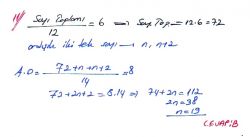 14) Sayı Toplamı / 12 = 6 ⟹ Sayı Top. = 12.6 = 72
ardışık iki tek sayı → n, n+2
A.O = 72+n+n+2 / 14 = 8
72+2n+2 = 8.14 ⟹ 74+2n = 112
2n = 38
n = 19
CEVAP: B